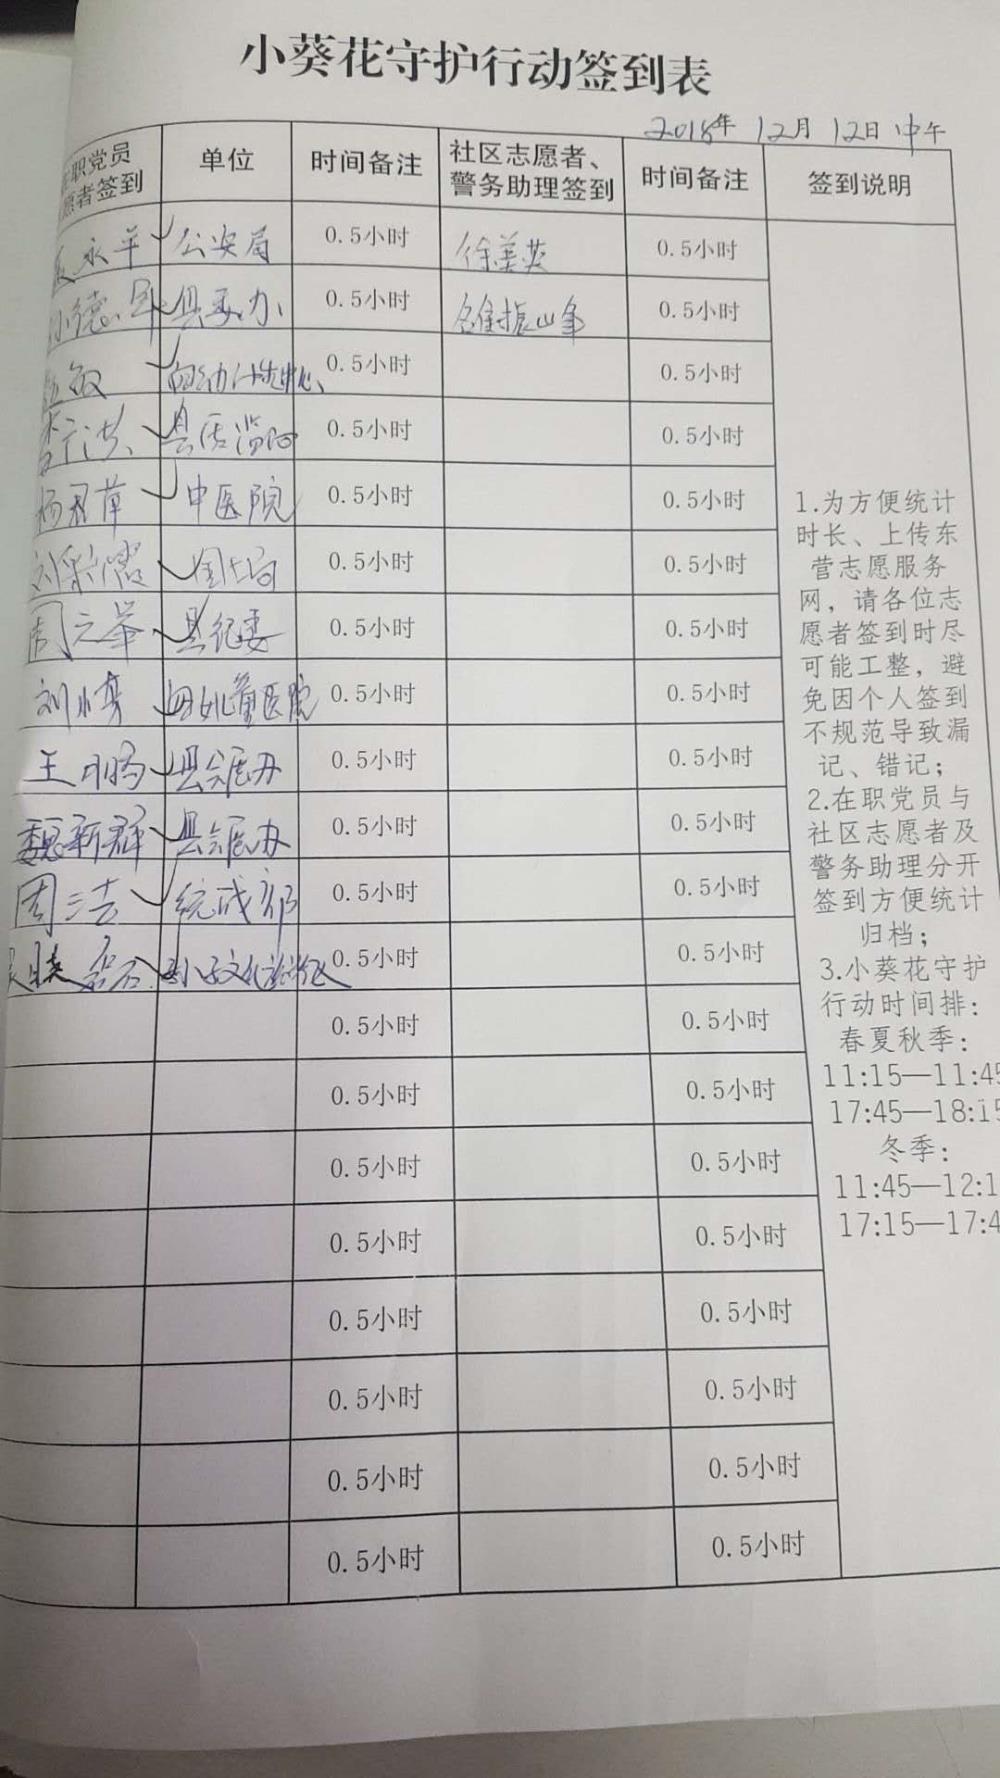 小葵花守护行动签到表
2018年 12月 12日 中午
职党员
愿者签到
单位
时间备注
社区志愿者、
警务助理签到
时间备注
签到说明
永平 公安局 0.5小时 徐美英 0.5小时
德 县委办 0.5小时 振峰 0.5小时
敏 0.5小时 0.5小时
李 0.5小时 0.5小时
杨君萍 中医院 0.5小时 0.5小时
刘彩霞 国土局 0.5小时 0.5小时
周元举 县纪委 0.5小时 0.5小时
刘小勇 妇女儿童医院 0.5小时 0.5小时
王鹏 0.5小时 0.5小时
魏新群 0.5小时 0.5小时
周三吉 统战部 0.5小时 0.5小时
晓 0.5小时 0.5小时
0.5小时 0.5小时
0.5小时 0.5小时
0.5小时 0.5小时
0.5小时 0.5小时
0.5小时 0.5小时
0.5小时 0.5小时
0.5小时 0.5小时
0.5小时 0.5小时
1.为方便统计
时长、上传东
营志愿服务
网，请各位志
愿者签到时尽
可能工整，避
免因个人签到
不规范导致漏
记、错记；
2.在职党员与
社区志愿者及
警务助理分开
签到方便统计
归档；
3.小葵花守护
行动时间排：
春夏秋季：
11:15—11:45
17:45—18:15
冬季：
11:45—12:1
17:15—17:4